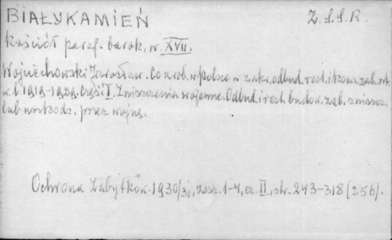 BIAŁYKAMIEŃ Z.S.S.R.
Kościół paraf. barok. w. XVII.
Wojciechowski Jarosław. Co zrob. w Polsce w zakr. odbud. rest. i kons. zab. szt.
w l. 1919-1929. Część I. Zniszczenia wojenne. Odbud. i rest. budow. zab. zniszcz.
lub uszkodz. przez wojnę.
Ochrona Zabytków. 1930/31, zesz. 1-4, cz. II, str. 243-318 (256).